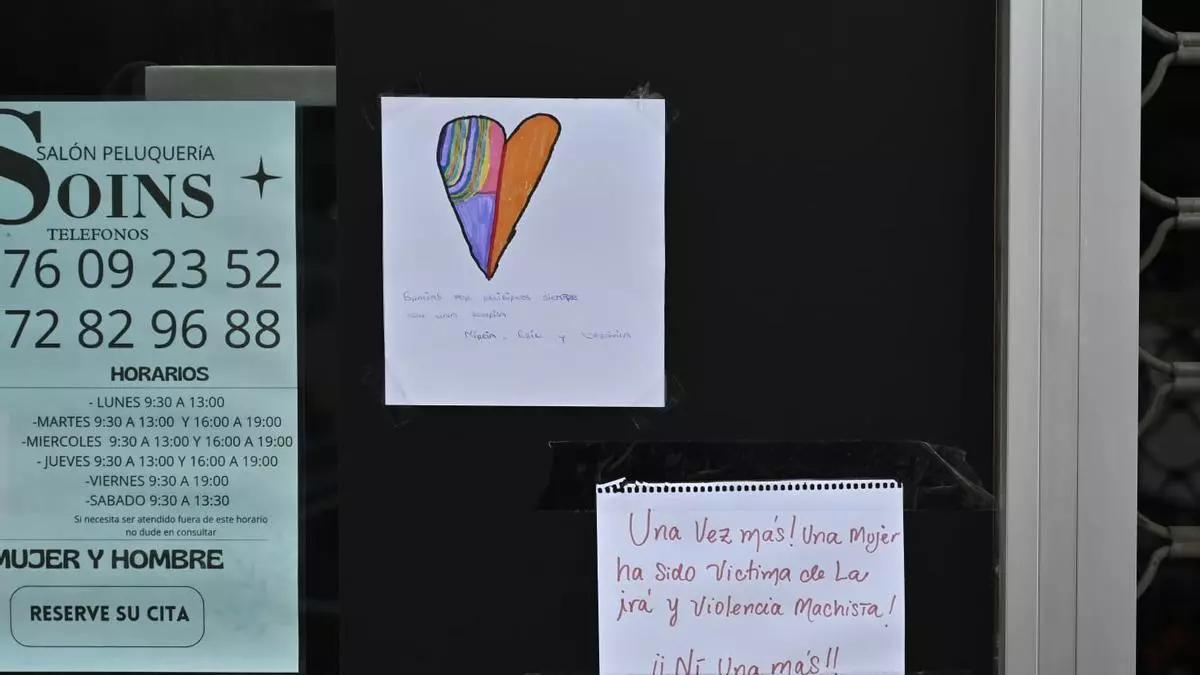 SALÓN PELUQUERíA
SOINS
TELEFONOS
76 09 23 52
72 82 96 88
HORARIOS
- LUNES 9:30 A 13:00
-MARTES 9:30 A 13:00 Y 16:00 A 19:00
-MIERCOLES 9:30 A 13:00 Y 16:00 A 19:00
- JUEVES 9:30 A 13:00 Y 16:00 A 19:00
-VIERNES 9:30 A 19:00
-SABADO 9:30 A 13:30
Si necesita ser atendido fuera de este horario
no dude en consultar
MUJER Y HOMBRE
RESERVE SU CITA
Gracias por recibirnos siempre
con una
y
Una Vez más! Una Mujer
ha sido Victima de La
irá y Violencia Machista!
¡¡Ni Una más!!